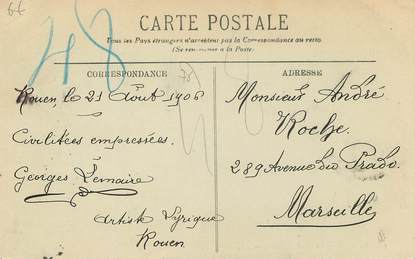 6€
48
CARTE POSTALE
Tous les Pays étrangers n'acceptent pas la Correspondance au recto.
(Se renseigner à la Poste).
CORRESPONDANCE
Rouen, le 21 Août 1906
Civilitées empressées.
Georges Lemaire
Artiste Lyrique
Rouen
ADRESSE
Monsieur André
Roche.
289 Avenue du Prado.
Marseille